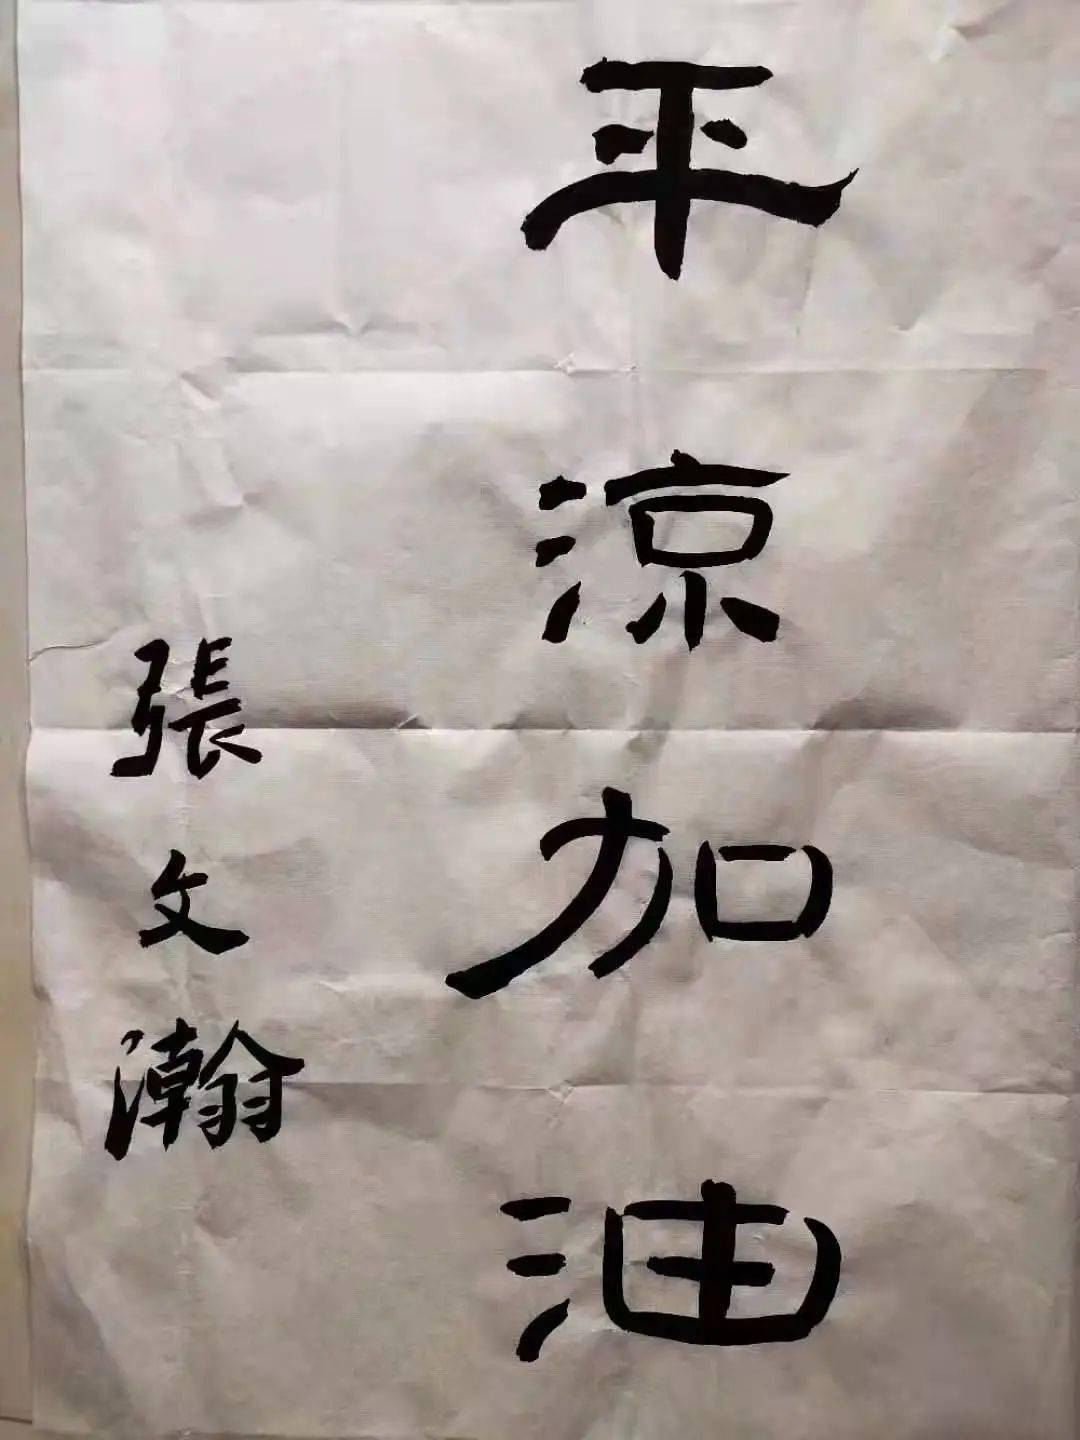 平涼加油
張文瀚